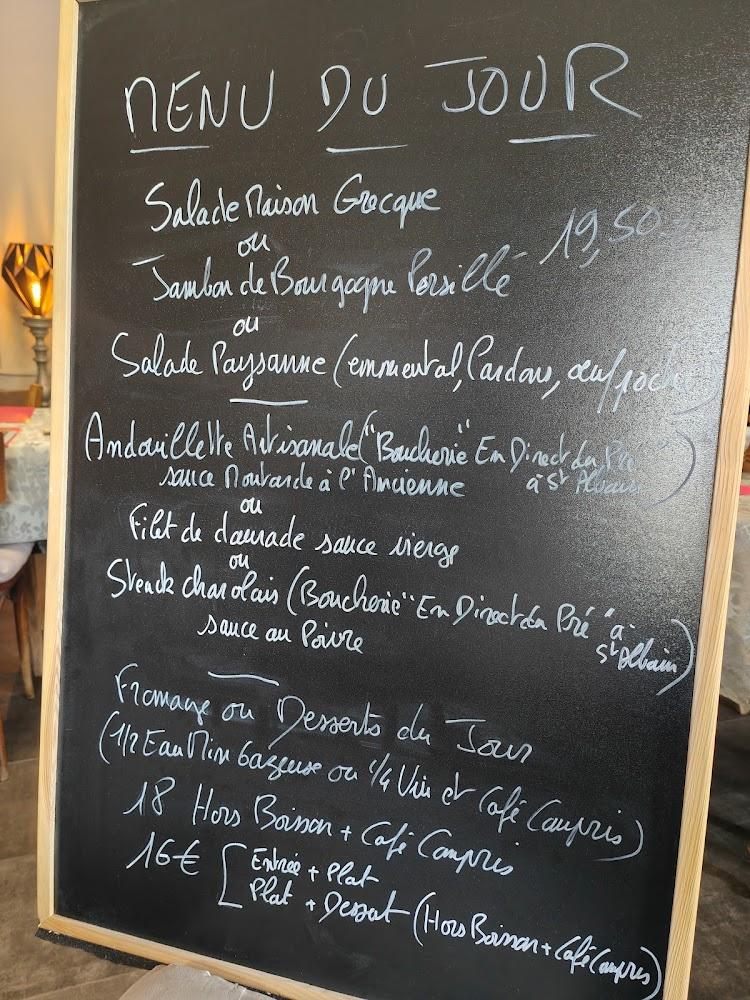 MENU DU JOUR
Salade Maison Grecque
19,50
ou
Jambon de Bourgogne Persillé
ou
Salade Paysanne (emmental, lardons, œuf poché)
Andouillette Artisanale ("Boucherie" En Direct du Pré
sauce Moutarde à l'Ancienne à St Albain)
ou
Filet de daurade sauce vierge
ou
Steack charolais (Boucherie" En Direct du Pré "à
sauce au Poivre St Albain)
Fromage ou Desserts du Jour
(1/2 Eau Min Gazeuse ou 1/4 Vin et Café Compris)
18 Hors Boisson + Café Compris
16€ [ Entrée + Plat
Plat + Dessert (Hors Boisson + Café Compris)